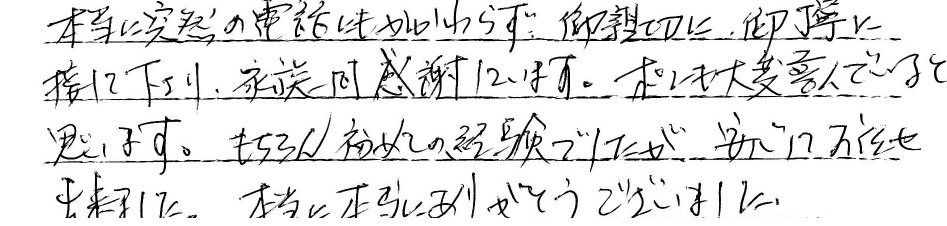 本当に突然の電話にもかかわらず、御親切に、御丁寧に
接して下さり、家族一同感謝しています。ポンも大変喜んでいると
思います。もちろん初めての経験でしたが、安心してお任せ
出来ました。本当に本当にありがとうございました。